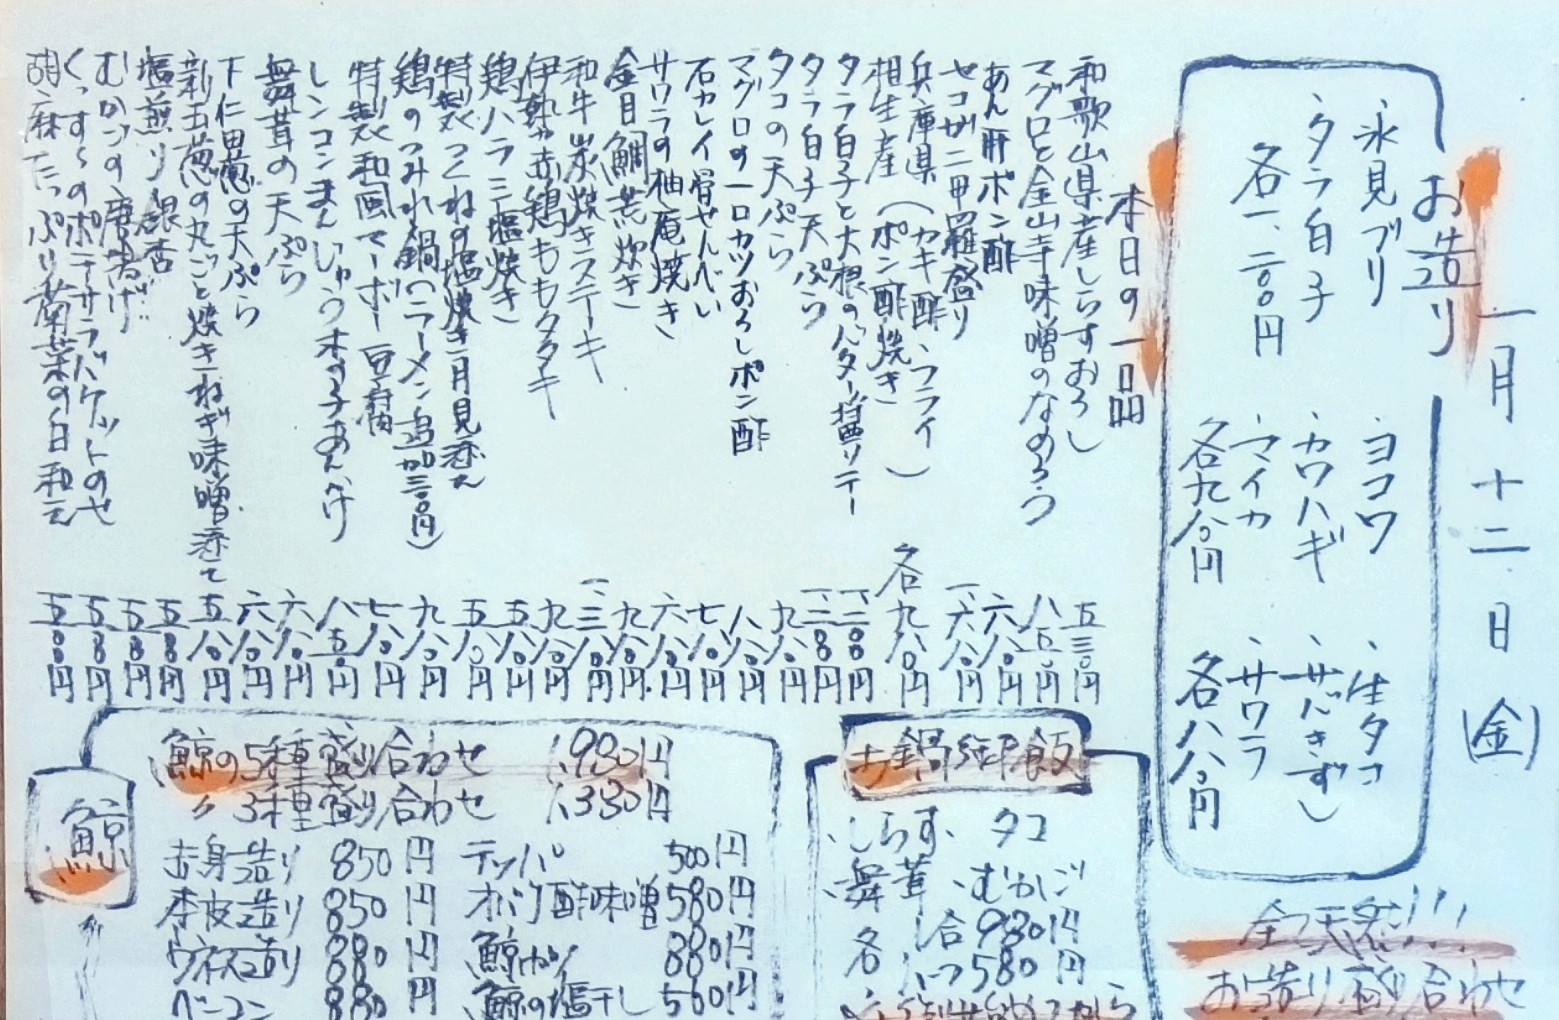 一月十二日(金)
お造り
、氷見ブリ
、タラ白子
各一、二〇〇円
、ヨコワ
、カワハギ
、マイカ
各九八〇円
、生タコ
、サバきずし
、サワラ
各八八〇円
全て天然!!!
お造り盛り合わせ
本日の一品
和歌山県産しらすおろし 五三〇円
マグロと金山寺味噌のなめろう 八五〇円
あん肝ポン酢 六八〇円
セコガニ甲羅盛り 一、六八〇円
兵庫県 相生産(カキ酢、フライ ポン酢焼き) 各九八〇円
タラ白子と大根のバター醤油ソテー 一、二〇〇円
タラ白子天ぷら 一、二〇〇円
タコの天ぷら 九八〇円
マグロの一口カツおろしポン酢 八八〇円
石カレイ骨せんべい 七八〇円
サワラの柚庵焼き 六八〇円
金目鯛煮炊き 九八〇円
和牛炭焼きステーキ 一、三八〇円
伊勢赤鶏ももタタキ 九八〇円
鶏ハラミ塩焼き 五八〇円
特製つくねの塩焼き月見添え 五八〇円
鶏のつみれ鍋(ラーメン追加三〇〇円) 九八〇円
特製和風マーボー豆腐 七八〇円
レンコンまんじゅう木の子あんかけ 八五〇円
舞茸の天ぷら 六八〇円
下仁田葱の天ぷら 六八〇円
新玉葱の丸ごと焼きねぎ味噌添えて 五八〇円
塩煎り銀杏 五五〇円
むかごの唐揚げ!! 五五〇円
くんすーのポテサラバケットのせ 五五〇円
胡麻たっぷり菊菜の白和え 五五〇円
お鍋御飯
、しらす、タコ
、舞茸、むかご
各 一合980円
ハーフ580円
鯨
鯨の5種盛り合わせ 1,980円
〃 3種盛り合わせ 1,330円
赤身造り 850円
本皮造り 850円
ウネス造り 880円
ベーコン 880円
テッパ 500円
オバケ酢味噌 580円
鯨カツ 880円
鯨の塩干し 560円